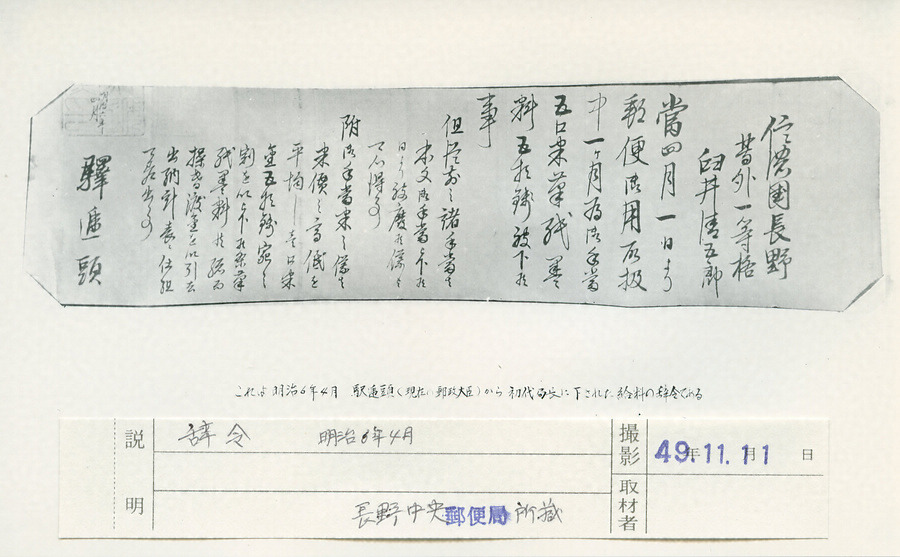 信濃國長野
等外一等格
臼井清五郎
當四月一日より
郵便御用取扱
中一ヶ月為御手當
五口米筆紙墨
料五拾銭被下候
事
但従前之諸手當者
本文御手當下候
日より被廃候儀と
可心得事
附御手當米之儀者
米價之高低を
平均し壱口米
金五拾銭宛之
割を以下候筆
紙墨料
出納計表之仕組
驛逓頭
これは明治6年4月 駅逓頭(現在の郵政大臣)から初代局長に下された給料の辞令である
説明
辞令 明治6年4月
長野中央郵便局所蔵
撮影
49年11月11日
取材者